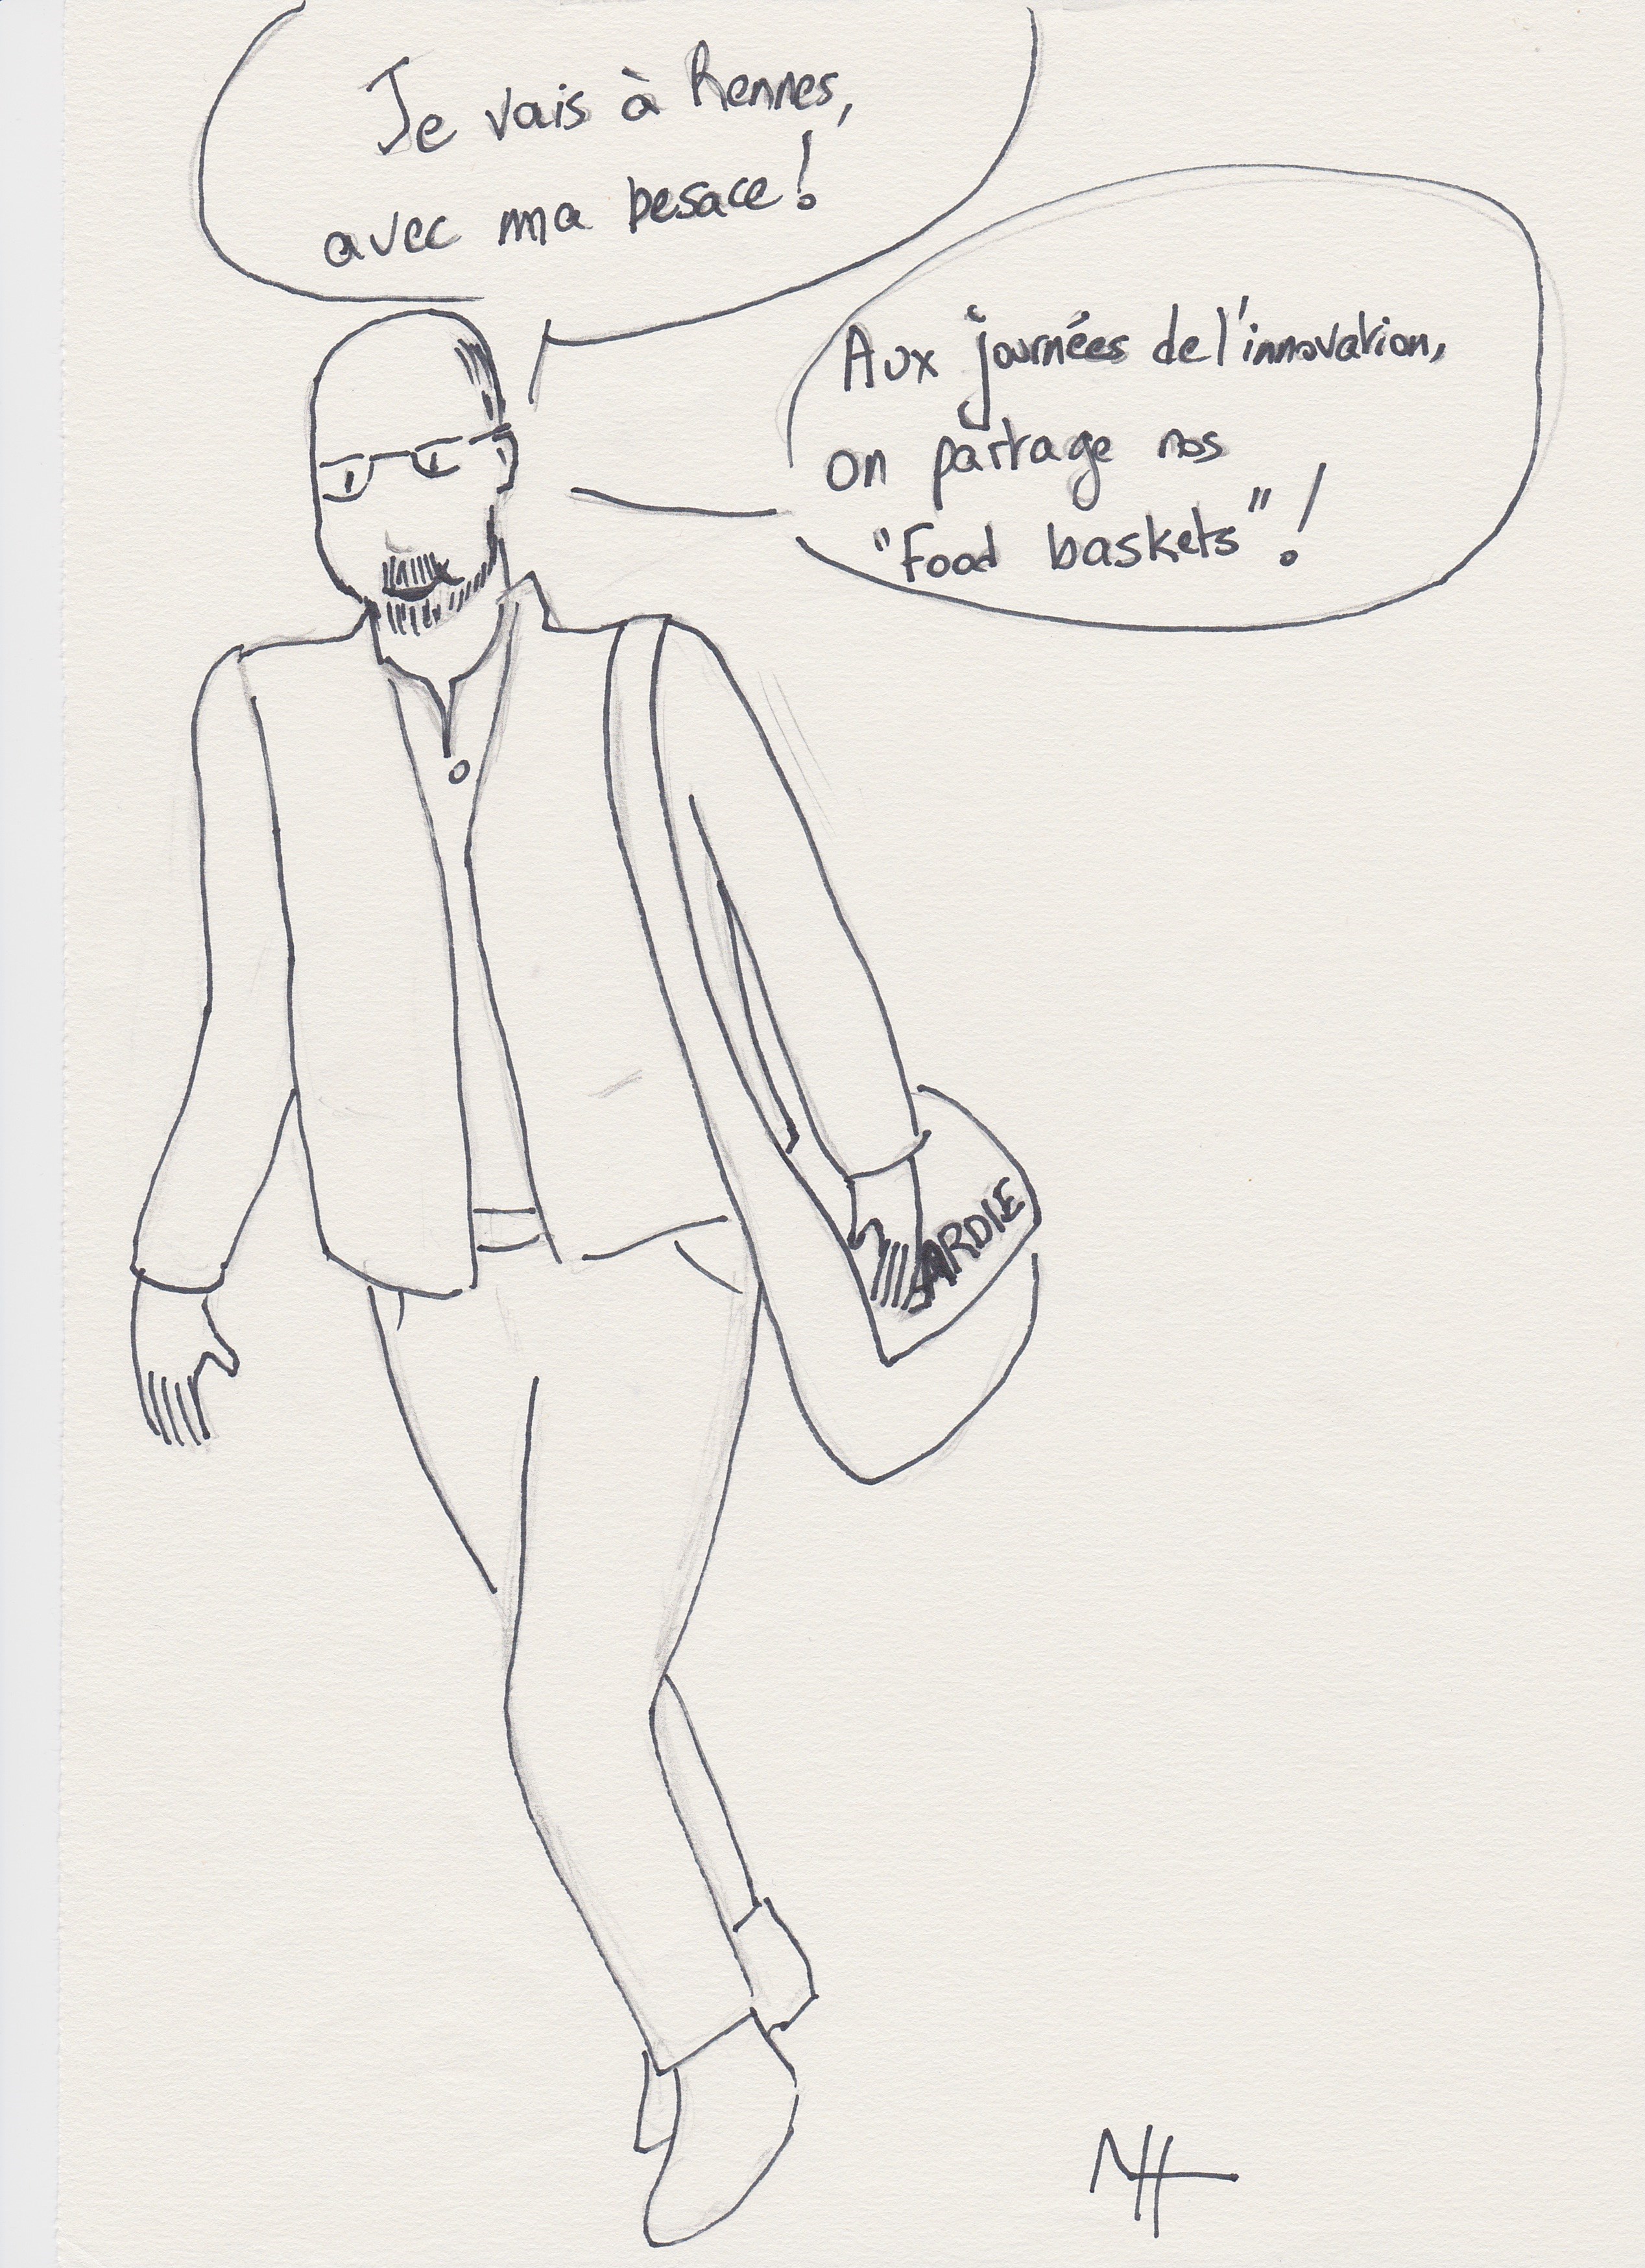 Je vais à Rennes,
avec ma besace!
Aux journées de l'innovation,
on partage nos
"Food baskets"!
ARDIE
NH